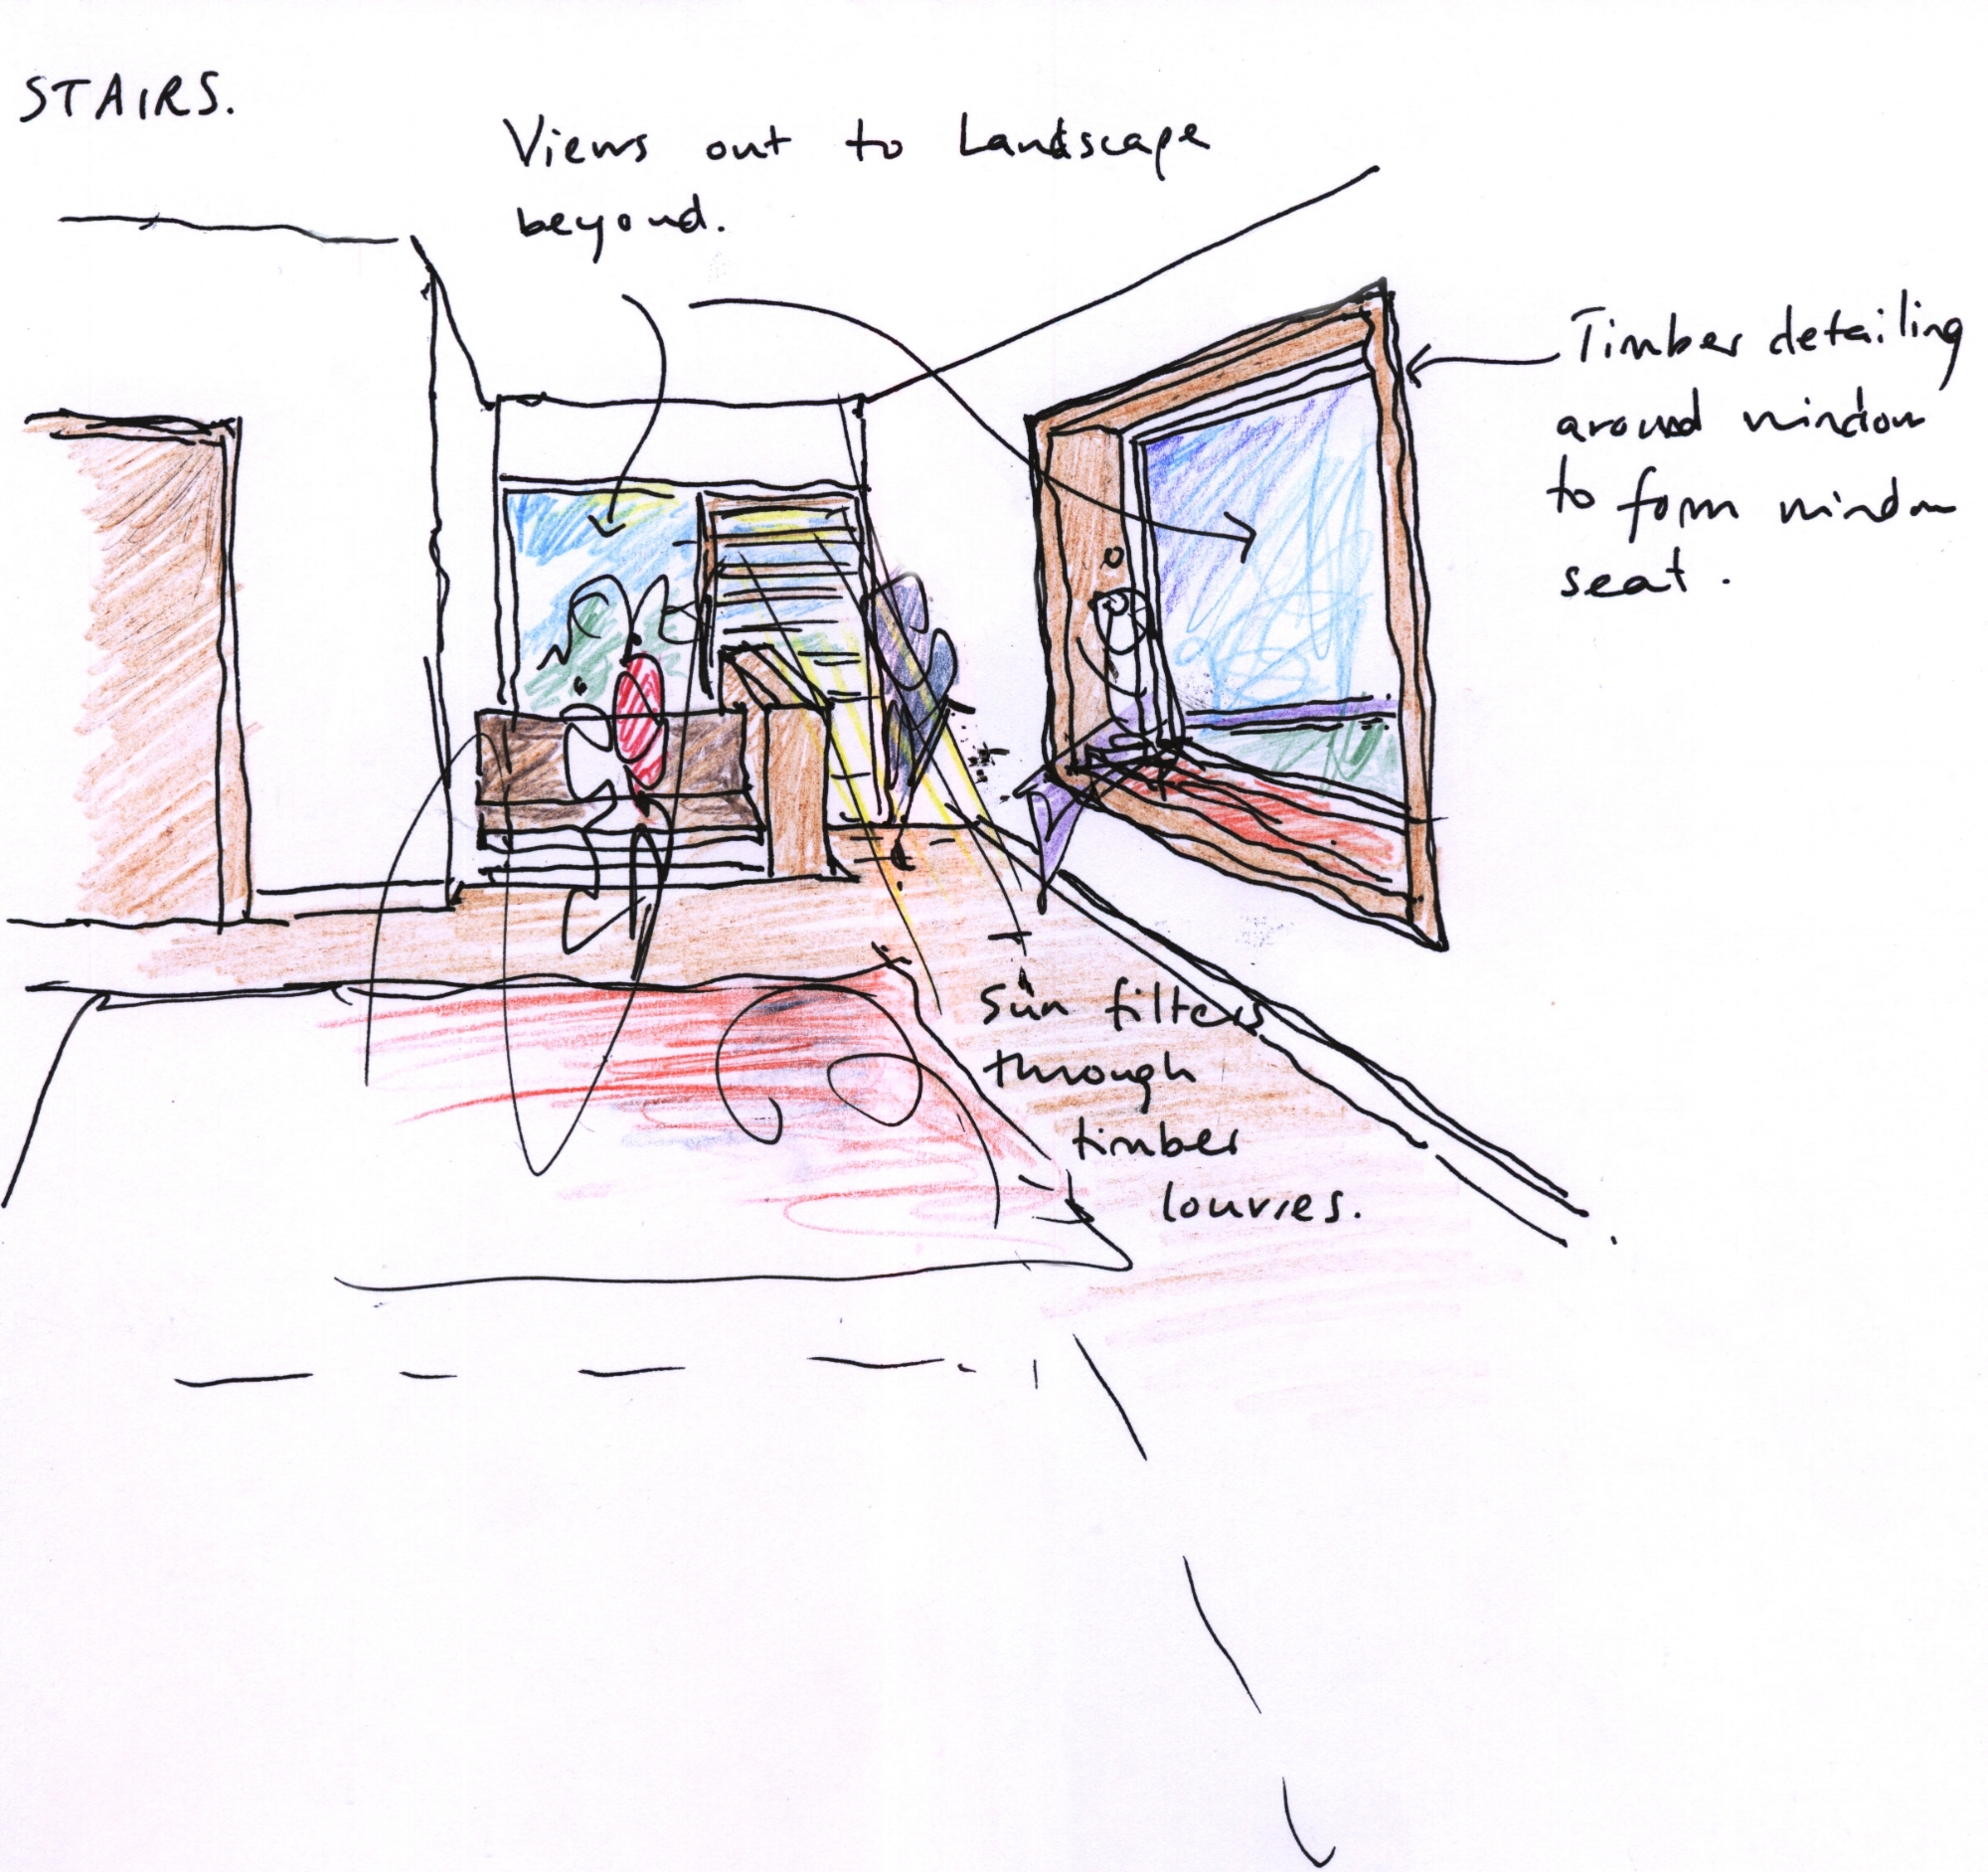 STAIRS.
Views out to Landscape
beyond.
Timber detailing
around window
to form window
seat.
Sun filters
through
timber
louvres.